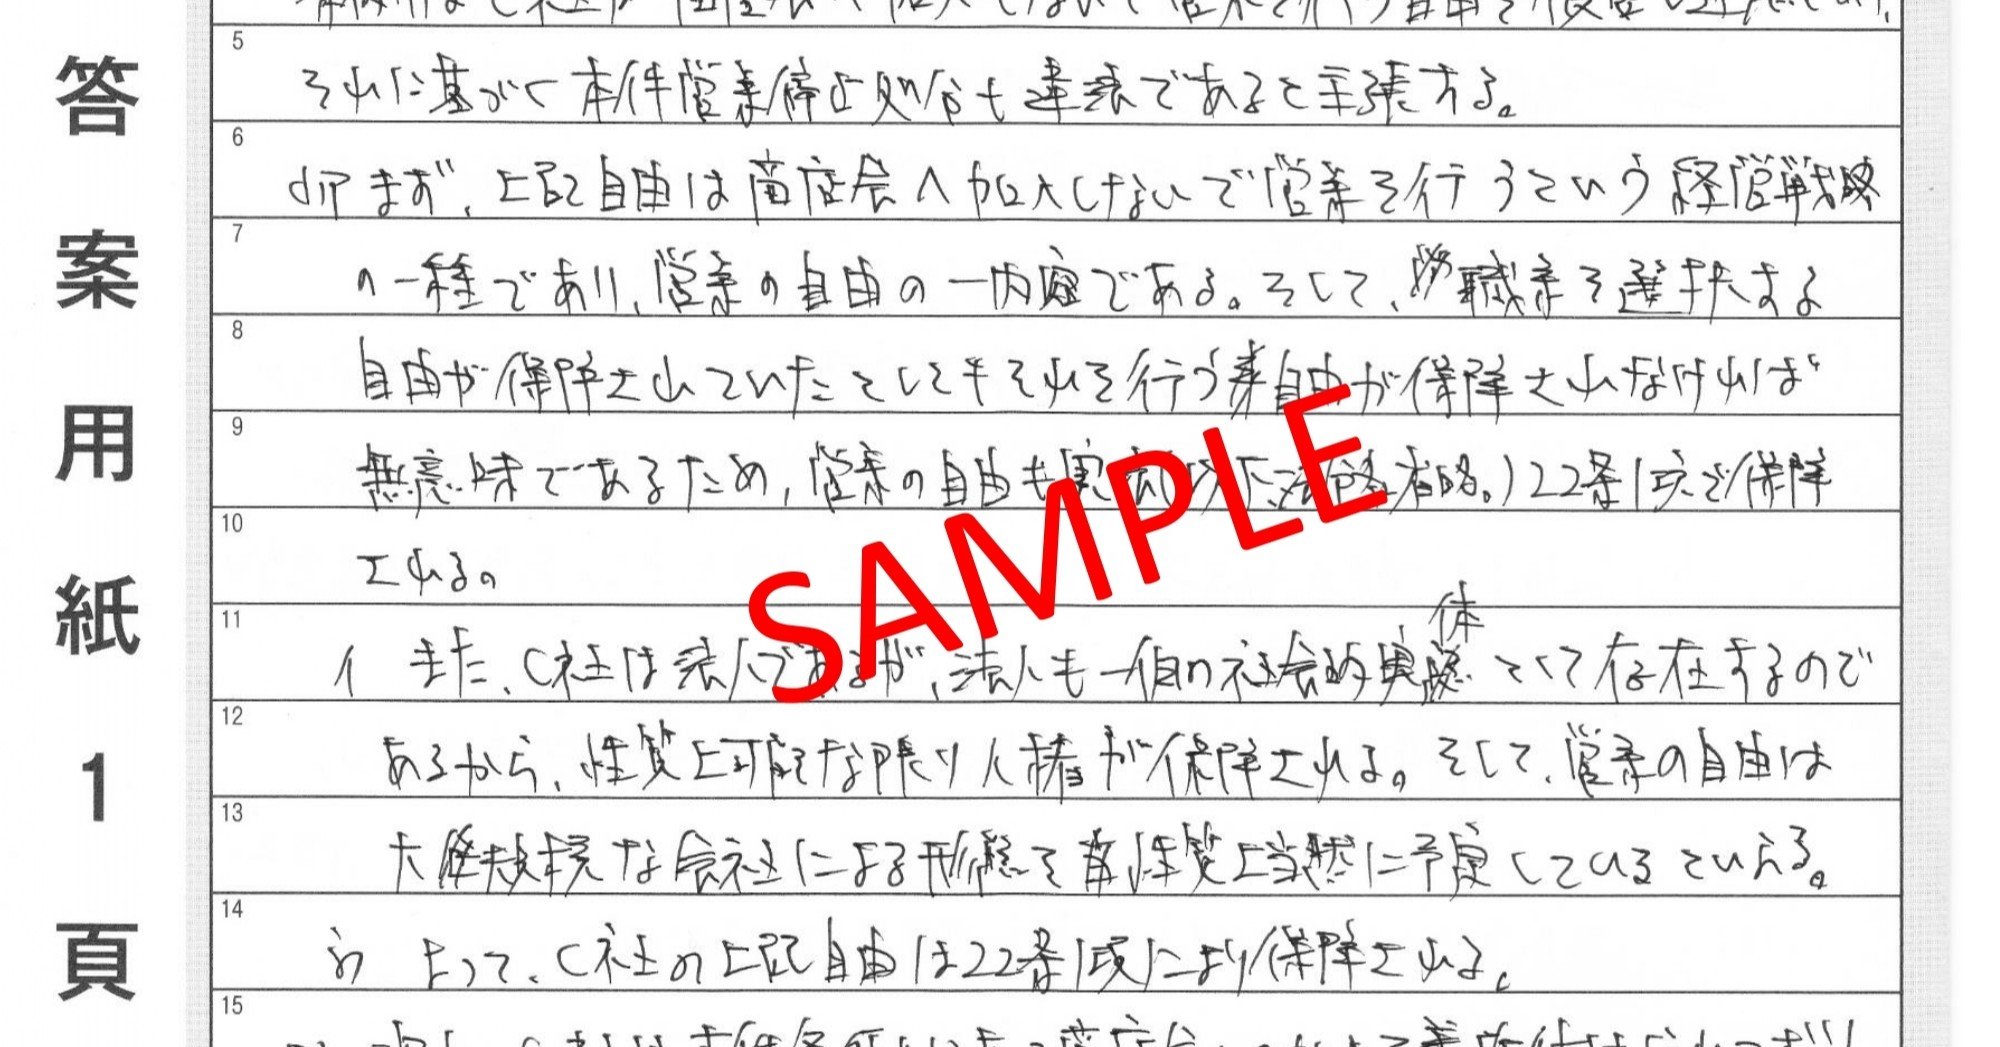 答案用紙1頁
5
それに基づく本件営業停止処分も違法であると主張する。
6
(1)ア まず、上記自由は商店会へ加入しないで営業を行うという経営戦略
7
の一種であり、営業の自由の一内容である。そして、職業を選択する
8
自由が保障されていたとしてもそれを行う自由が保障されなければ
9
無意味であるため、営業の自由も憲法(以下法令名省略。)22条1項で保障
10
される。
11
イ また、C社は法人であるが、法人も一個の社会的実体として存在するので
12
あるから、性質上可能な限り人権が保障される。そして、営業の自由は
13
大規模な会社による形態を性質上当然に予定しているといえる。
14
ウ よって、C社の上記自由は22条1項により保障される。
15
SAMPLE